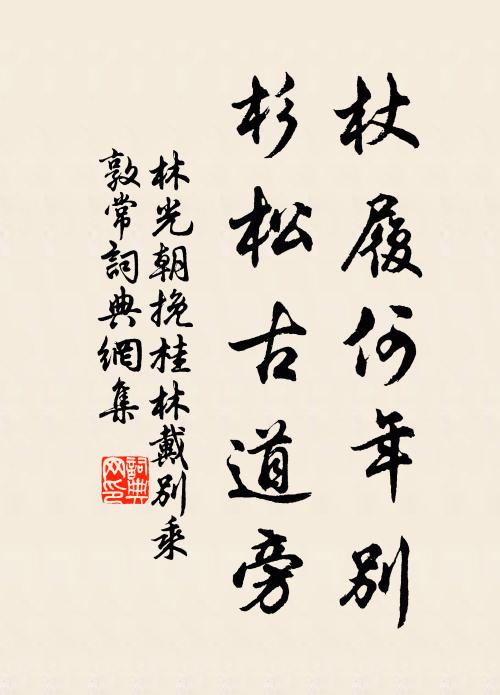 杖履何年别
杉松古道旁
林光朝挽桂林戴别乘
敦常詞典網集
詞典网印